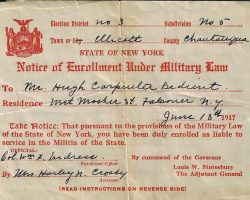 Election District no 3 Subdivision No 5
Town or City Ellicott County Chautauqua
STATE OF NEW YORK
Notice of Enrollment Under Military Law
To Mr. Hugh Carpenter Bedient
Residence Mosher St. Falconer N.Y
June 13th 1917
TAKE NOTICE: That pursuant to the provisions of the Military Law
of the State of New York, you have been duly enrolled as liable to
service in the Militia of the State.
OFFICIAL:
Col. Wm. F. Endress
Enrolling Officer
By command of the Governor
By Mrs. Harley N. Crosby
Assistant
Louis W. Stotesbury
The Adjutant General
(READ INSTRUCTIONS ON REVERSE SIDE)